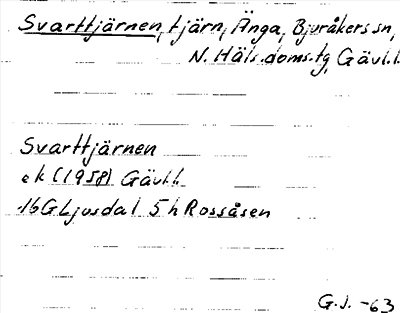 Svarttjärnen, tjärn, Änga, Bjuråkers sn,
N. Häls. doms.tg, Gävl.l.
Svarttjärnen
ek (1958) Gävl.l.
16G Ljusdal 5h Rossåsen
G.J. -63